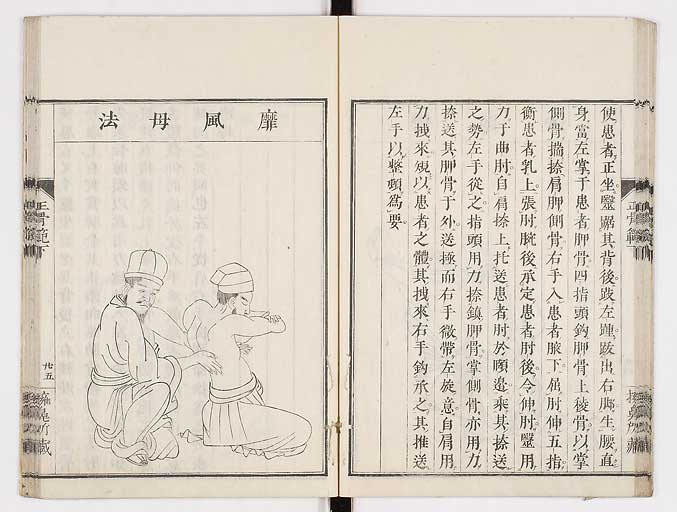 使患者正坐醫踞其背後跂左踵跋出右膝生腰直
身當左掌于患者胛骨四指頭鈎胛骨上稜骨以掌
側骨揣捺肩胛側骨右手入患者腋下屈肘伸五指
衡患者乳上張肘腕後承定患者肘後令伸肘醫用
力于曲肘自肩捺上托送患者肘於頤邉乘其捺送
之勢左手從之指頭用力捺鎮胛骨掌側骨亦用力
捺送其胛骨于外送極而右手微帶左旋意自肩用
力拽來規以患者之體其拽來右手鈎承之其推送
左手以整頓爲要
正骨範
靡風母法
正骨範下
廿五